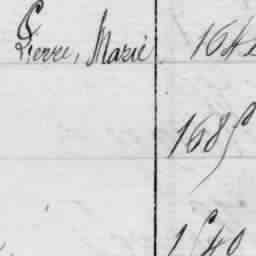 Pierre, Marie 164
1685
1540